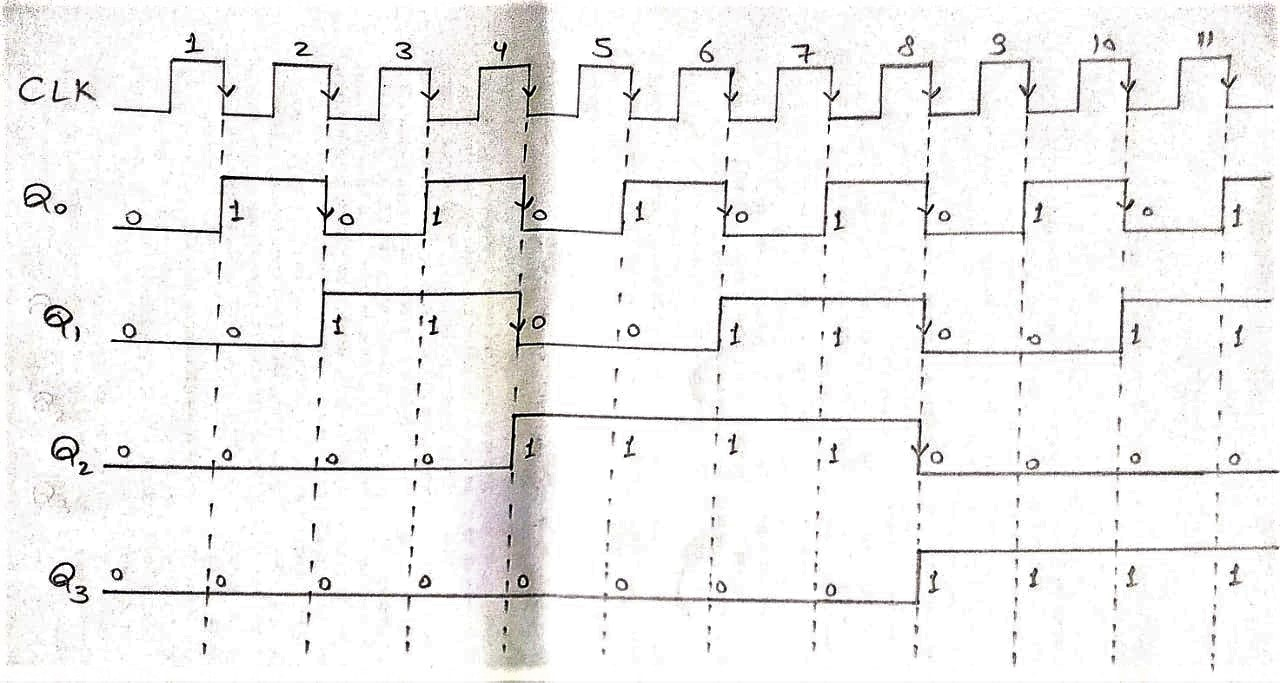 1 2 3 4 5 6 7 8 9 10 11
CLK
Q₀ 0 1 0 1 0 1 0 1 0 1 0 1
Q₁ 0 0 1 1 0 0 1 1 0 0 1 1
Q₂ 0 0 0 0 1 1 1 1 0 0 0 0
Q₃ 0 0 0 0 0 0 0 0 1 1 1 1